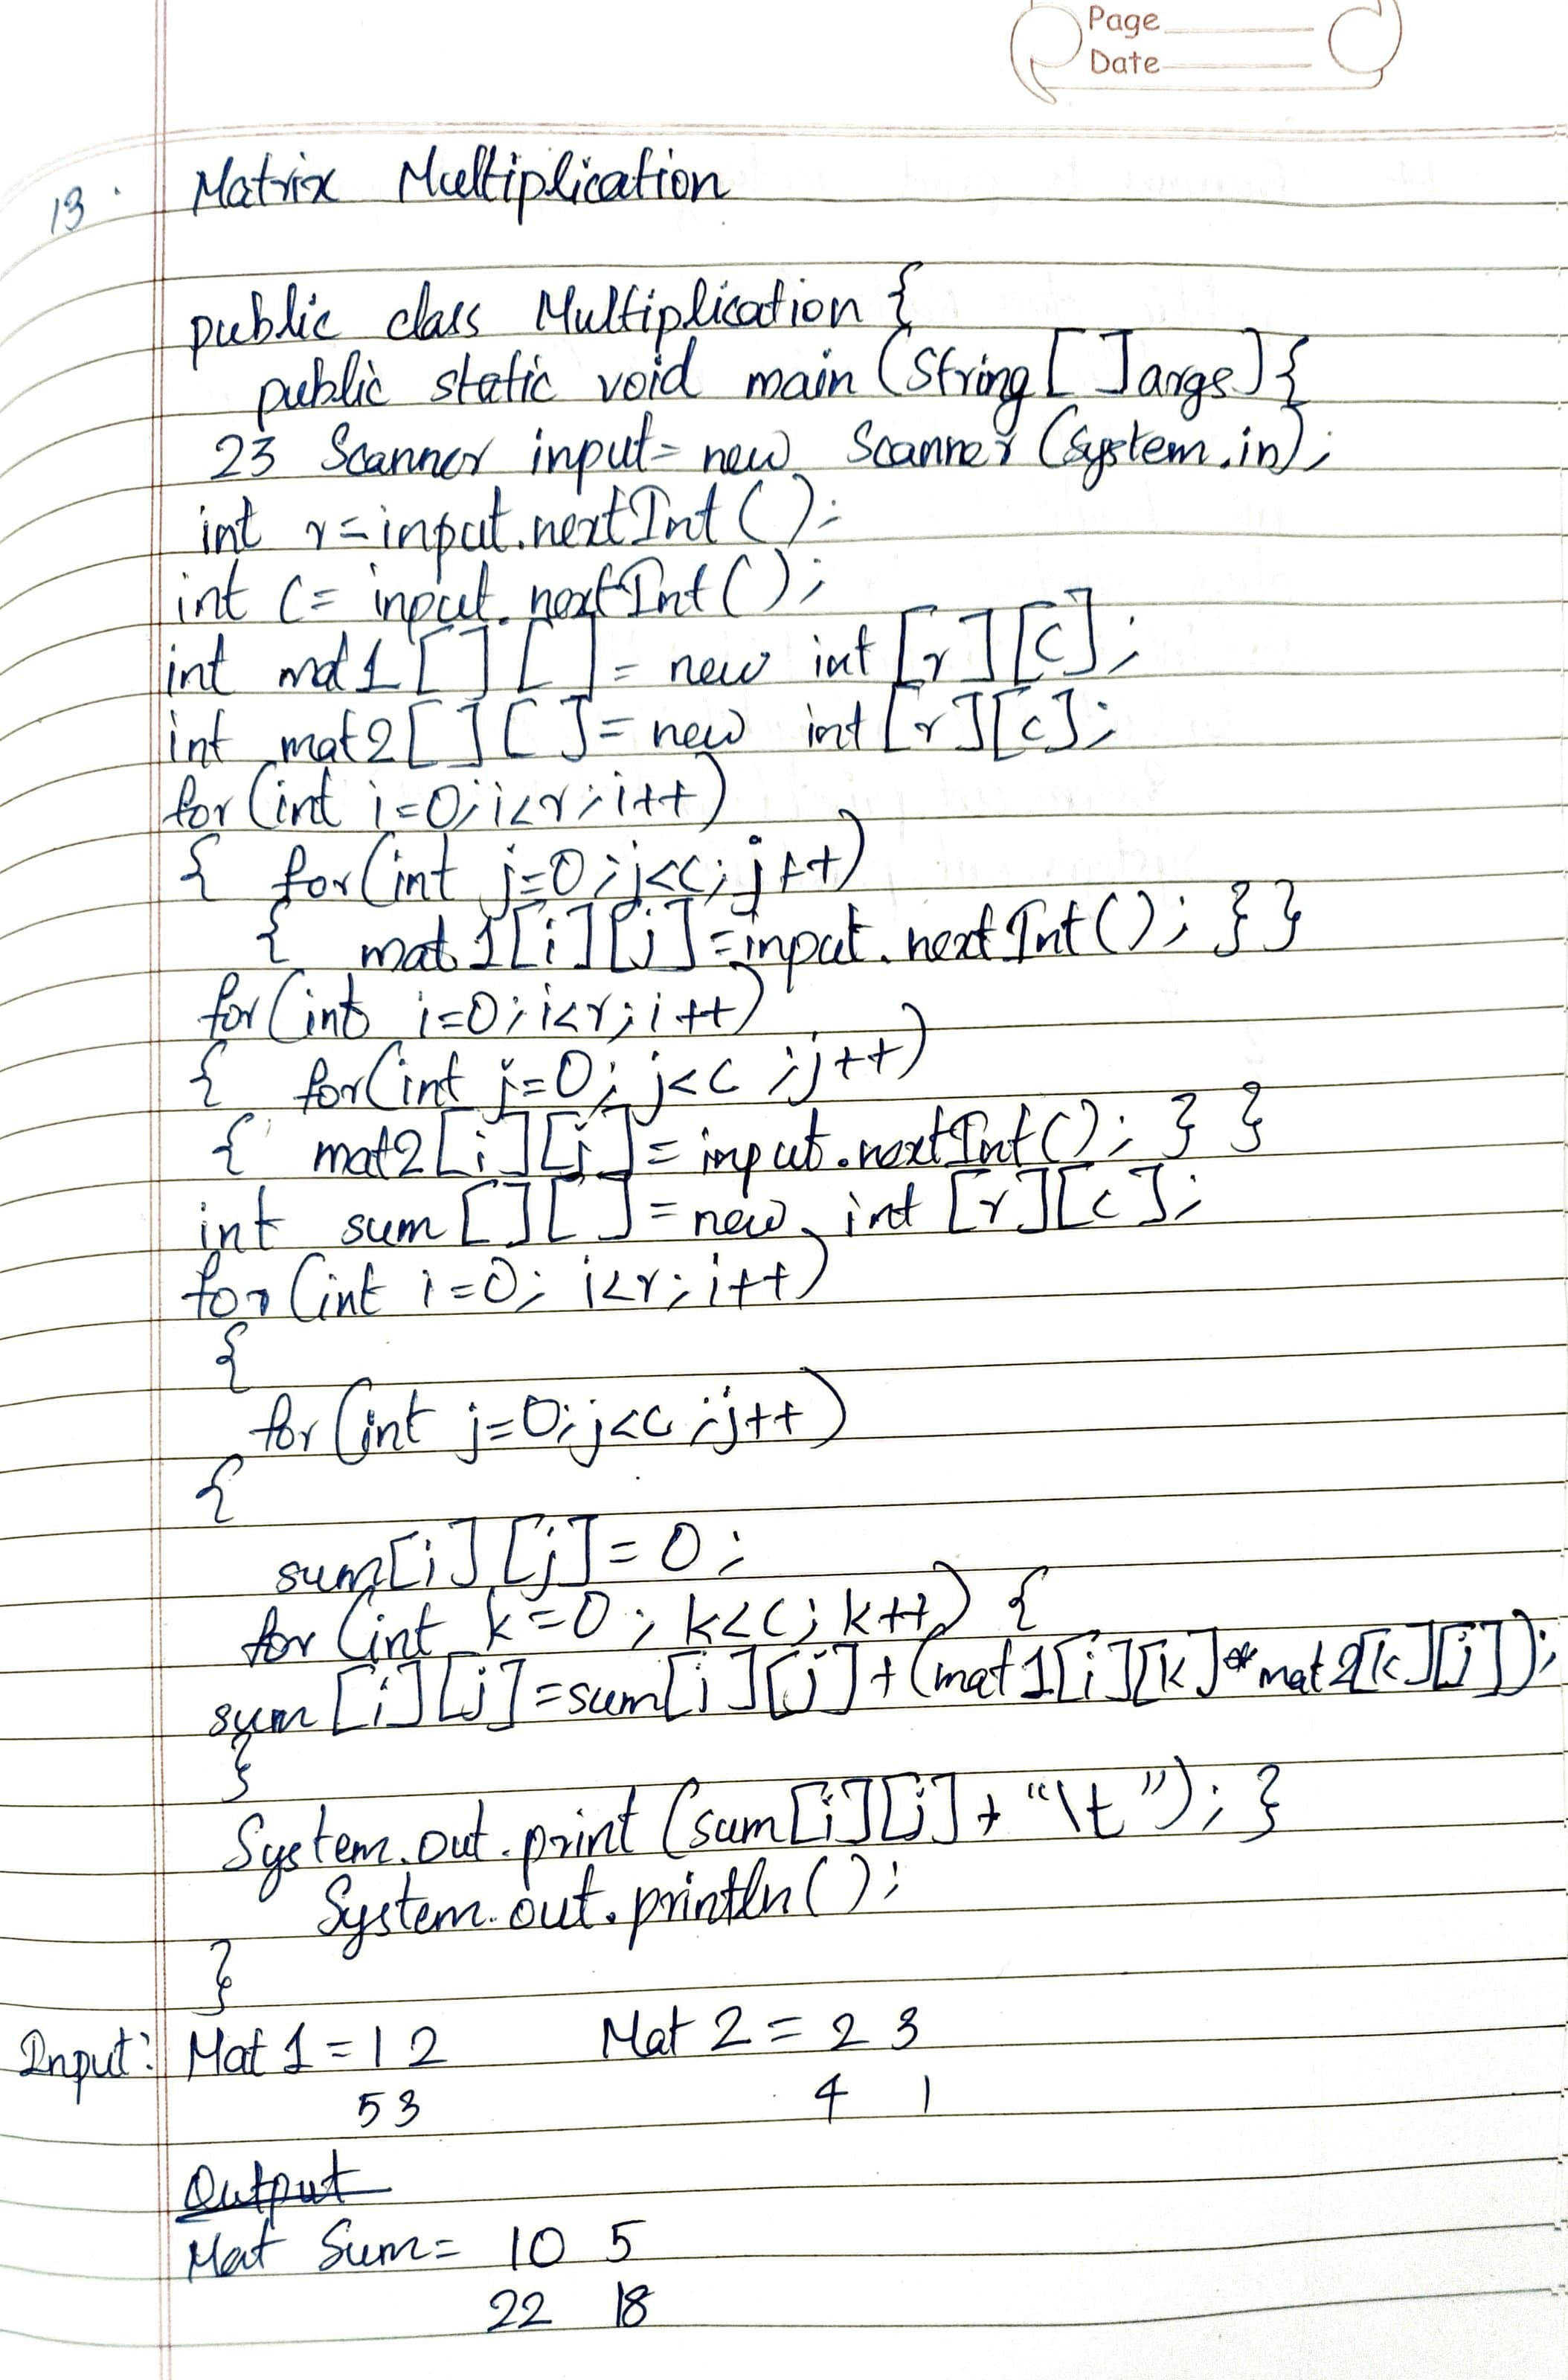 Page
Date
13. Matrix Multiplication
public class Multiplication {
public static void main (String [ ] args) {
23 Scanner input = new Scanner (System.in);
int r = input.nextInt ( );
int c = input.nextInt ( );
int mat1 [ ] [ ] = new int [r] [c];
int mat2 [ ] [ ] = new int [r] [c];
for (int i=0; i<r; i++)
{ for (int j=0; j<c; j++)
{ mat1[i][j] = input.nextInt(); } }
for (int i=0; i<r; i++)
{ for (int j=0; j<c ; j++)
{ mat2 [i][j] = input.nextInt(); } }
int sum [ ] [ ] = new int [r] [c];
for (int i=0; i<r; i++)
{
for (int j=0; j<c ; j++)
{
sum[i] [j] = 0 ;
for (int k=0 ; k<c; k++) {
sum [i] [j] = sum[i][j] + (mat1[i][k] * mat2[k][j]);
}
System.out.print (sum[i][j] + "\t"); }
System.out.println();
}
Input: Mat 1 = 1 2 Mat 2 = 2 3
5 3 4 1
Output
Mat Sum = 10 5
22 18